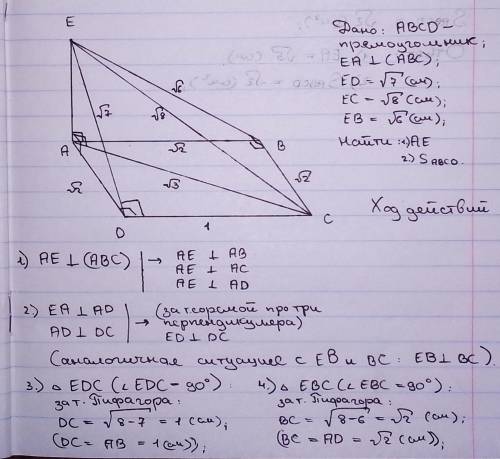 E
Дано: ABCD –
прямоугольник;
EA ⊥ (ABC);
ED = √7 (см);
EC = √8 (см);
EB = √6 (см);
Найти: 1) AE
2) S ABCD.
√7
√8
√6
A
√2
B
√2
√3
√2
D
1
C
Ход действий
1) AE ⊥ (ABC) → AE ⊥ AB
AE ⊥ AC
AE ⊥ AD
2) EA ⊥ AD
AD ⊥ DC → (за теоремой про три
перпендикуляра)
ED ⊥ DC
(аналогичная ситуация с EB и BC: EB ⊥ BC).
3.) △ EDC (∠EDC = 90°):
за т. Пифагора:
DC = √8-7 = 1 (см);
(DC = AB = 1 (см));
4.) △ EBC (∠EBC = 90°):
за т. Пифагора:
BC = √8-6 = √2 (см);
(BC = AD = √2 (см));